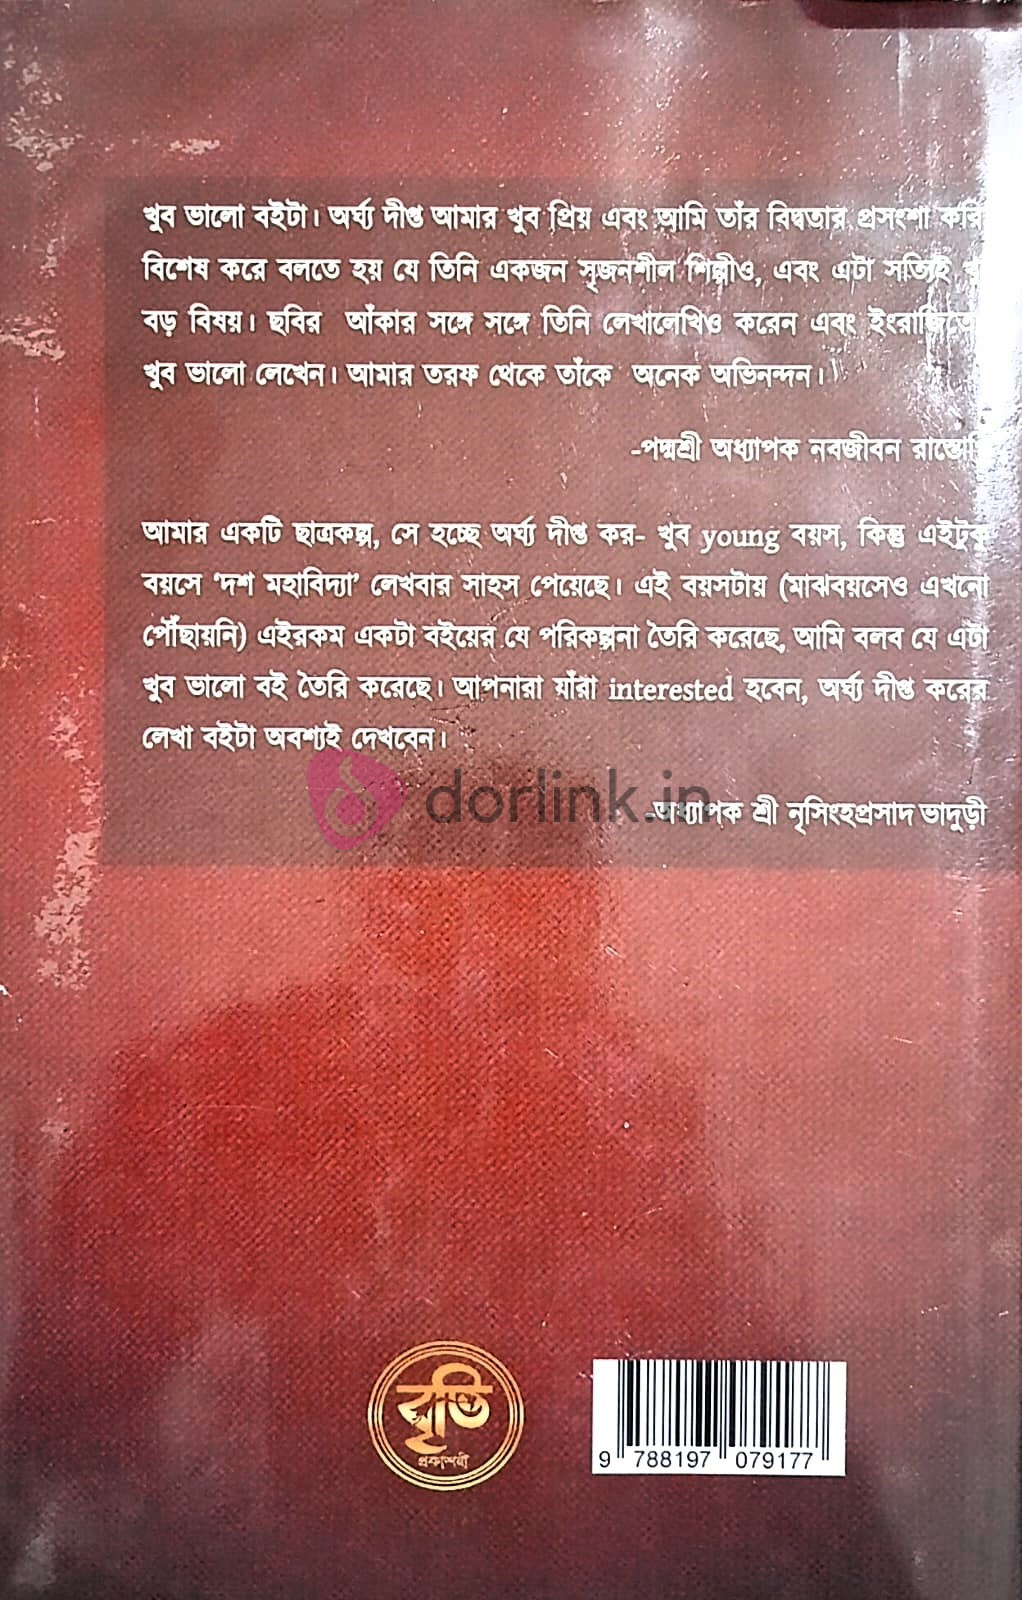 খুব ভালো বইটা। অর্ঘ্য দীপ্ত আমার খুব প্রিয় এবং আমি তাঁর বিদ্বতার প্রসংশা করি
বিশেষ করে বলতে হয় যে তিনি একজন সৃজনশীল শিল্পীও, এবং এটা সত্যিই
বড় বিষয়। ছবির আঁকার সঙ্গে সঙ্গে তিনি লেখালেখিও করেন এবং ইংরাজিতে
খুব ভালো লেখেন। আমার তরফ থেকে তাঁকে অনেক অভিনন্দন।
-পদ্মশ্রী অধ্যাপক নবজীবন
আমার একটি ছাত্রকল্প, সে হচ্ছে অর্ঘ্য দীপ্ত কর- খুব young বয়স, কিন্তু এইটুকু
বয়সে ‘দশ মহাবিদ্যা’ লেখবার সাহস পেয়েছে। এই বয়সটায় (মাঝবয়সেও এখনো
পৌঁছায়নি) এইরকম একটা বইয়ের যে পরিকল্পনা তৈরি করেছে, আমি বলব যে এটা
খুব ভালো বই তৈরি করেছে। আপনারা যাঁরা interested হবেন, অর্ঘ্য দীপ্ত করের
লেখা বইটা অবশ্যই দেখবেন।
dorlink.in
-অধ্যাপক শ্রী নৃসিংহপ্রসাদ ভাদুড়ী
বৃত্তি
প্রকাশনী
9 788197 079177